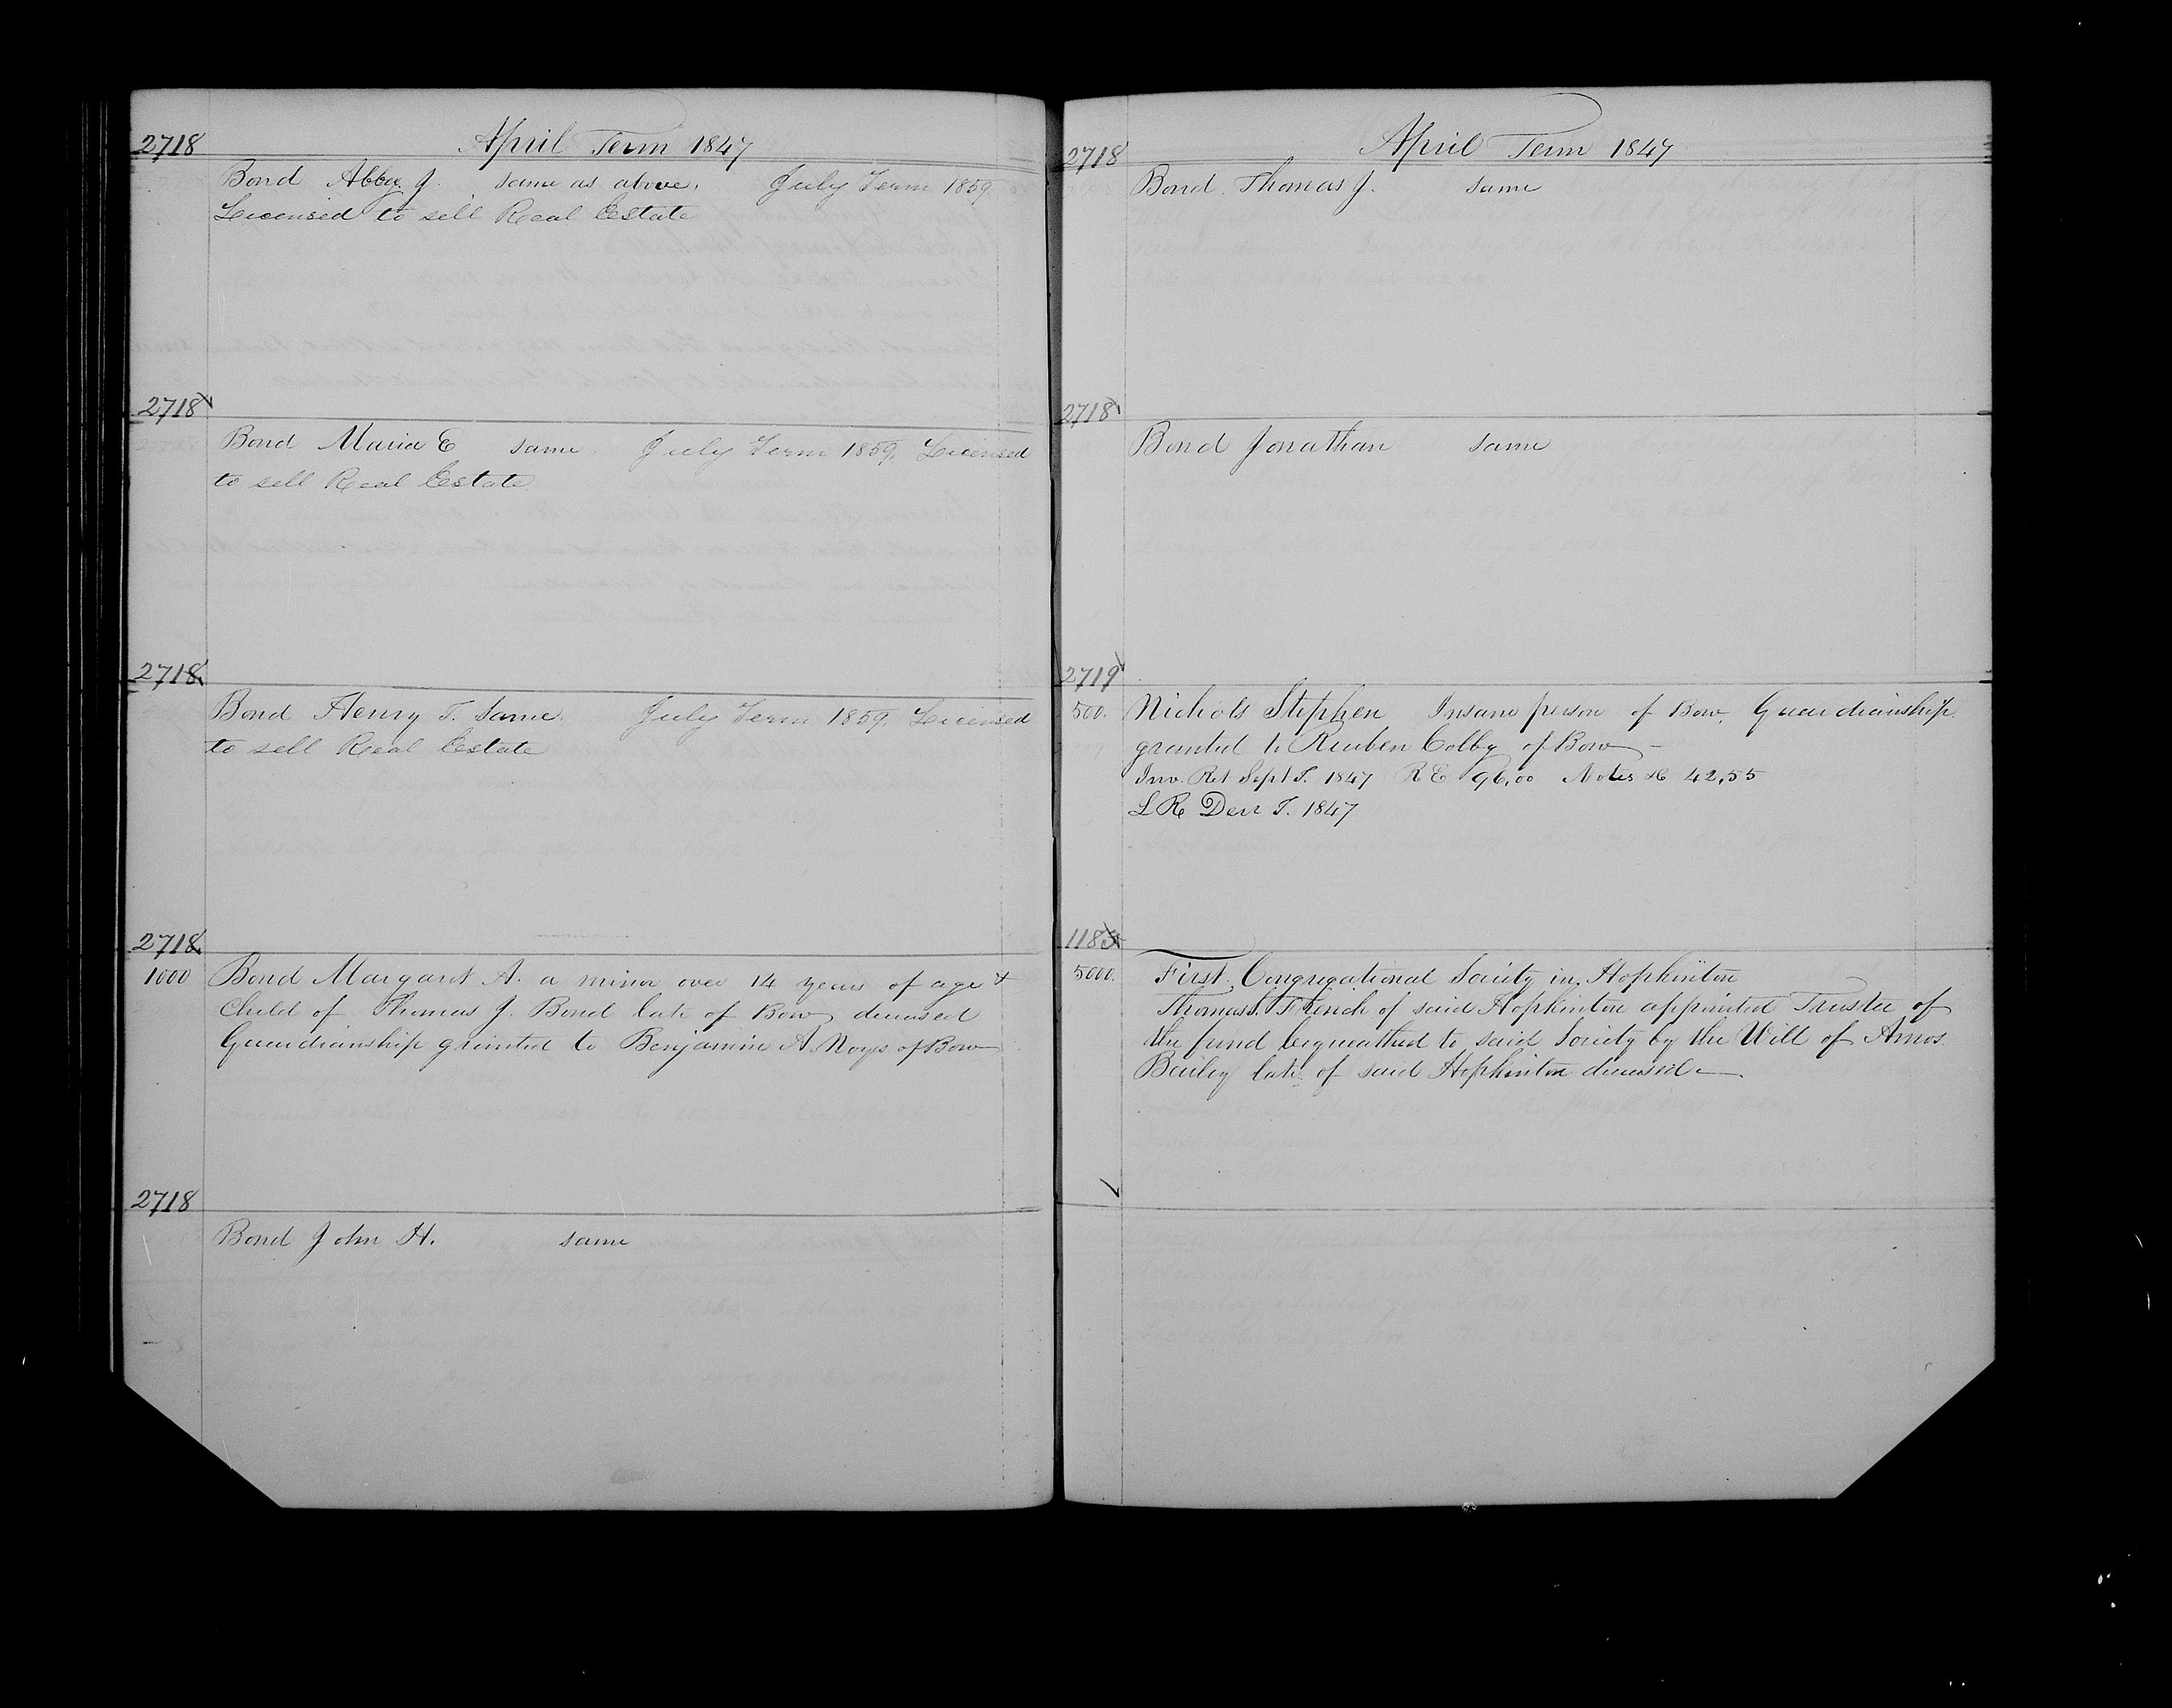 2718 April Term 1847
Bond Abba J. same as above. July Term 1859.
Licensed to sell Real Estate
2718
Bond Maria E same July Term 1859, Licensed
to sell Real Estate.
2718
Bond Henry T. Same. July Term 1859, Licensed
to sell Real Estate
2718
1000 Bond Margaret A. a minor over 14 years of age &
Child of Thomas J. Bond late of Bow deceased
Guardianship granted to Benjamin A. Noyes of Bow
2718
Bond John H. same
2718 April Term 1847
Bond Thomas J. same
2718
Bond Jonathan same
2719
500. Nichols Stephen Insane person of Bow, Guardianship
granted to Reuben Colby of Bow
Inv. Ret Sept T. 1847 R E 96,00 Notes &c 42,55
L R Decr T. 1847
1183
5000. First Congregational Society in Hopkinton
Thomas S. French of said Hopkinton appointed Trustee of
the fund bequeathed to said Society by the Will of Amos
Bailey late of said Hopkinton deceased